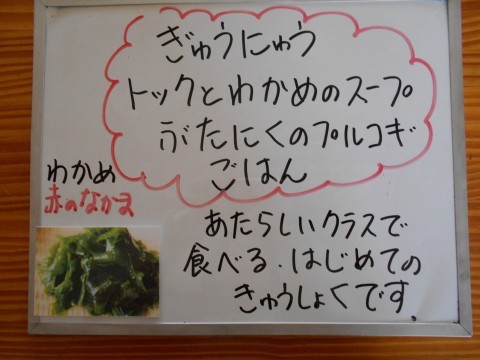 ぎゅうにゅう
トックとわかめのスープ
ぶたにくのプルコギ
ごはん
わかめ
赤のなかま
あたらしいクラスで
食べる.はじめての
きゅうしょくです.